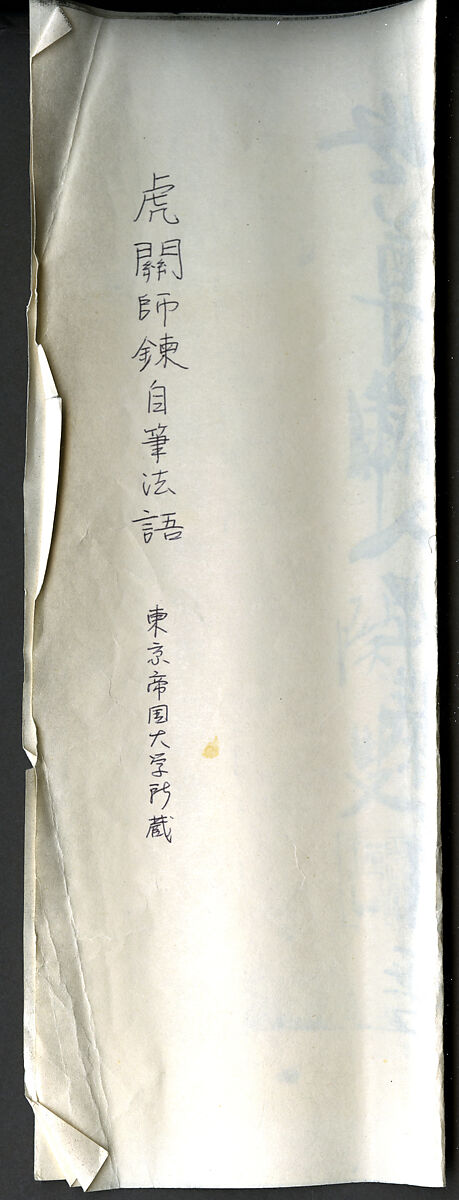 虎關師錬自筆法語
東京帝国大学所蔵